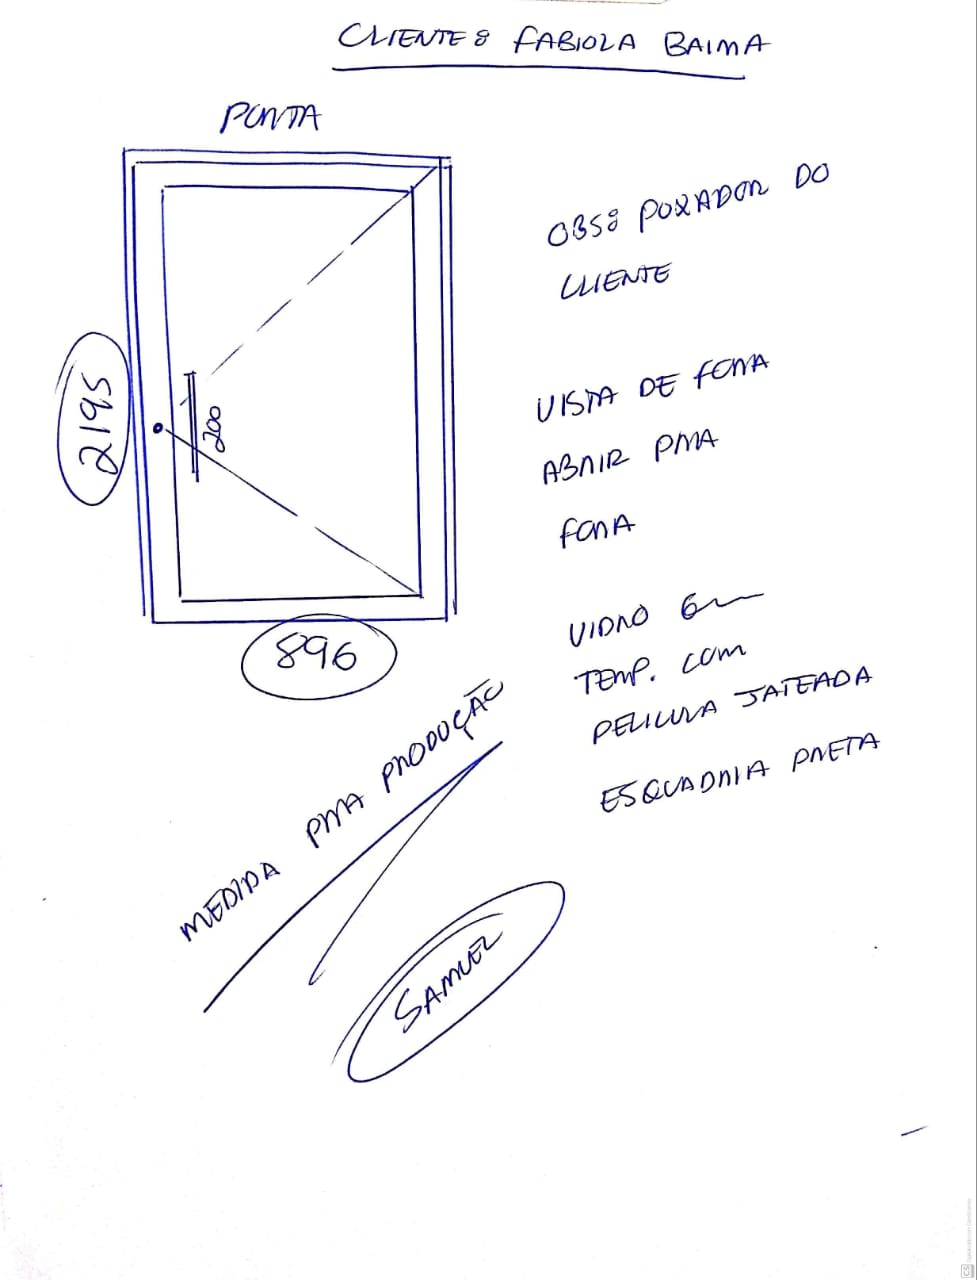 CLIENTE: FABIOLA BAIMA
PORTA
OBS: PUXADOR DO
CLIENTE
VISTA DE FORA
ABRIR PRA
FORA
2195
200
896
VIDRO 6mm
TEMP. COM
PELICULA JATEADA
ESQUADRIA PRETA
MEDIDA PRA PRODUÇÃO
SAMUEL
CS